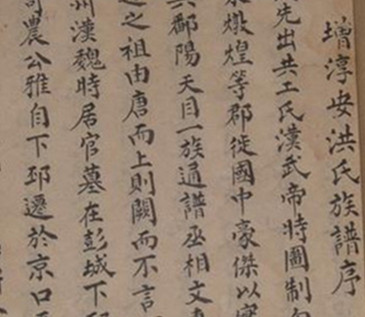 增淳安洪氏族譜序
先出共工氏漢武帝時圖制匈
燉煌等郡徙國中豪傑以實
鄱陽天目一族通譜丞相文
之祖由唐而上則闕而不言
州漢魏時居官墓在彭城下邳
農公雅自下邳遷於京口